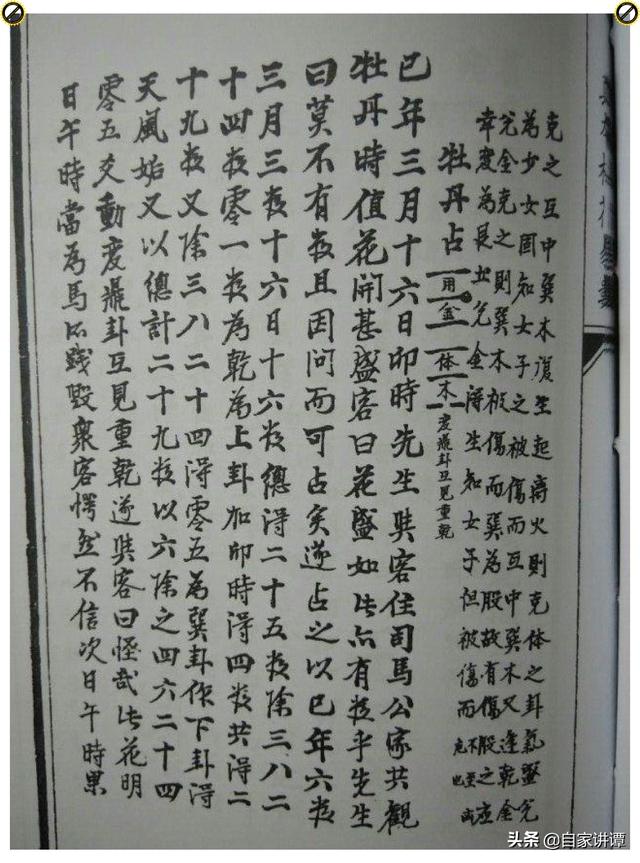 克之互中巽木復生起离火則克体之卦氣盛兑
為少女因知女子之被傷而互中巽木又逢乾金
兑金克之則巽木被傷而巽為股故有傷股之應
幸变為艮土兑金得生知女子但被傷而不至凶危也
牡丹占
用金
体木
变鼎卦互見重乾
巳年三月十六日卯時先生與客往司馬公家共觀
牡丹時值花開甚盛客曰花盛如此亦有数乎先生
曰莫不有数且因問而可占矣遂占之以巳年六数
三月三数十六日十六数總得二十五数除三八二
十四数零一数為乾為上卦加卯時得四数共得二
十九数又除三八二十四得零五為巽卦作下卦得
天風姤又以總計二十九数以六除之四六二十四
零五爻動变鼎卦互見重乾遂與客曰怪哉此花明
日午時當為馬所踐毀衆客愕然不信次日午時果
头条 @自家讲谭